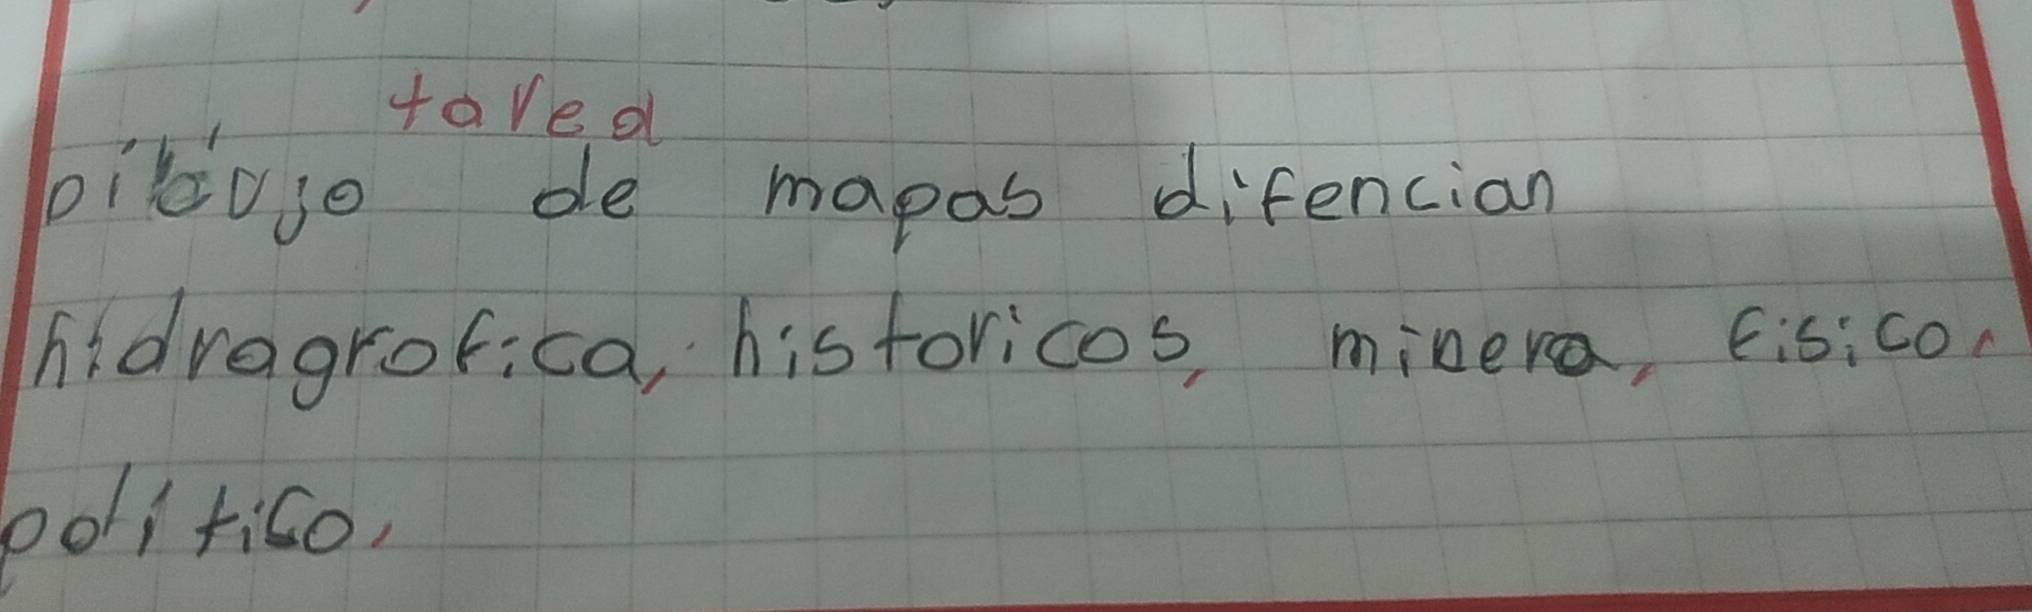 tarea
dibujo de mapas difencian
hidragrofica, historicos, minera, fisico,
politico,